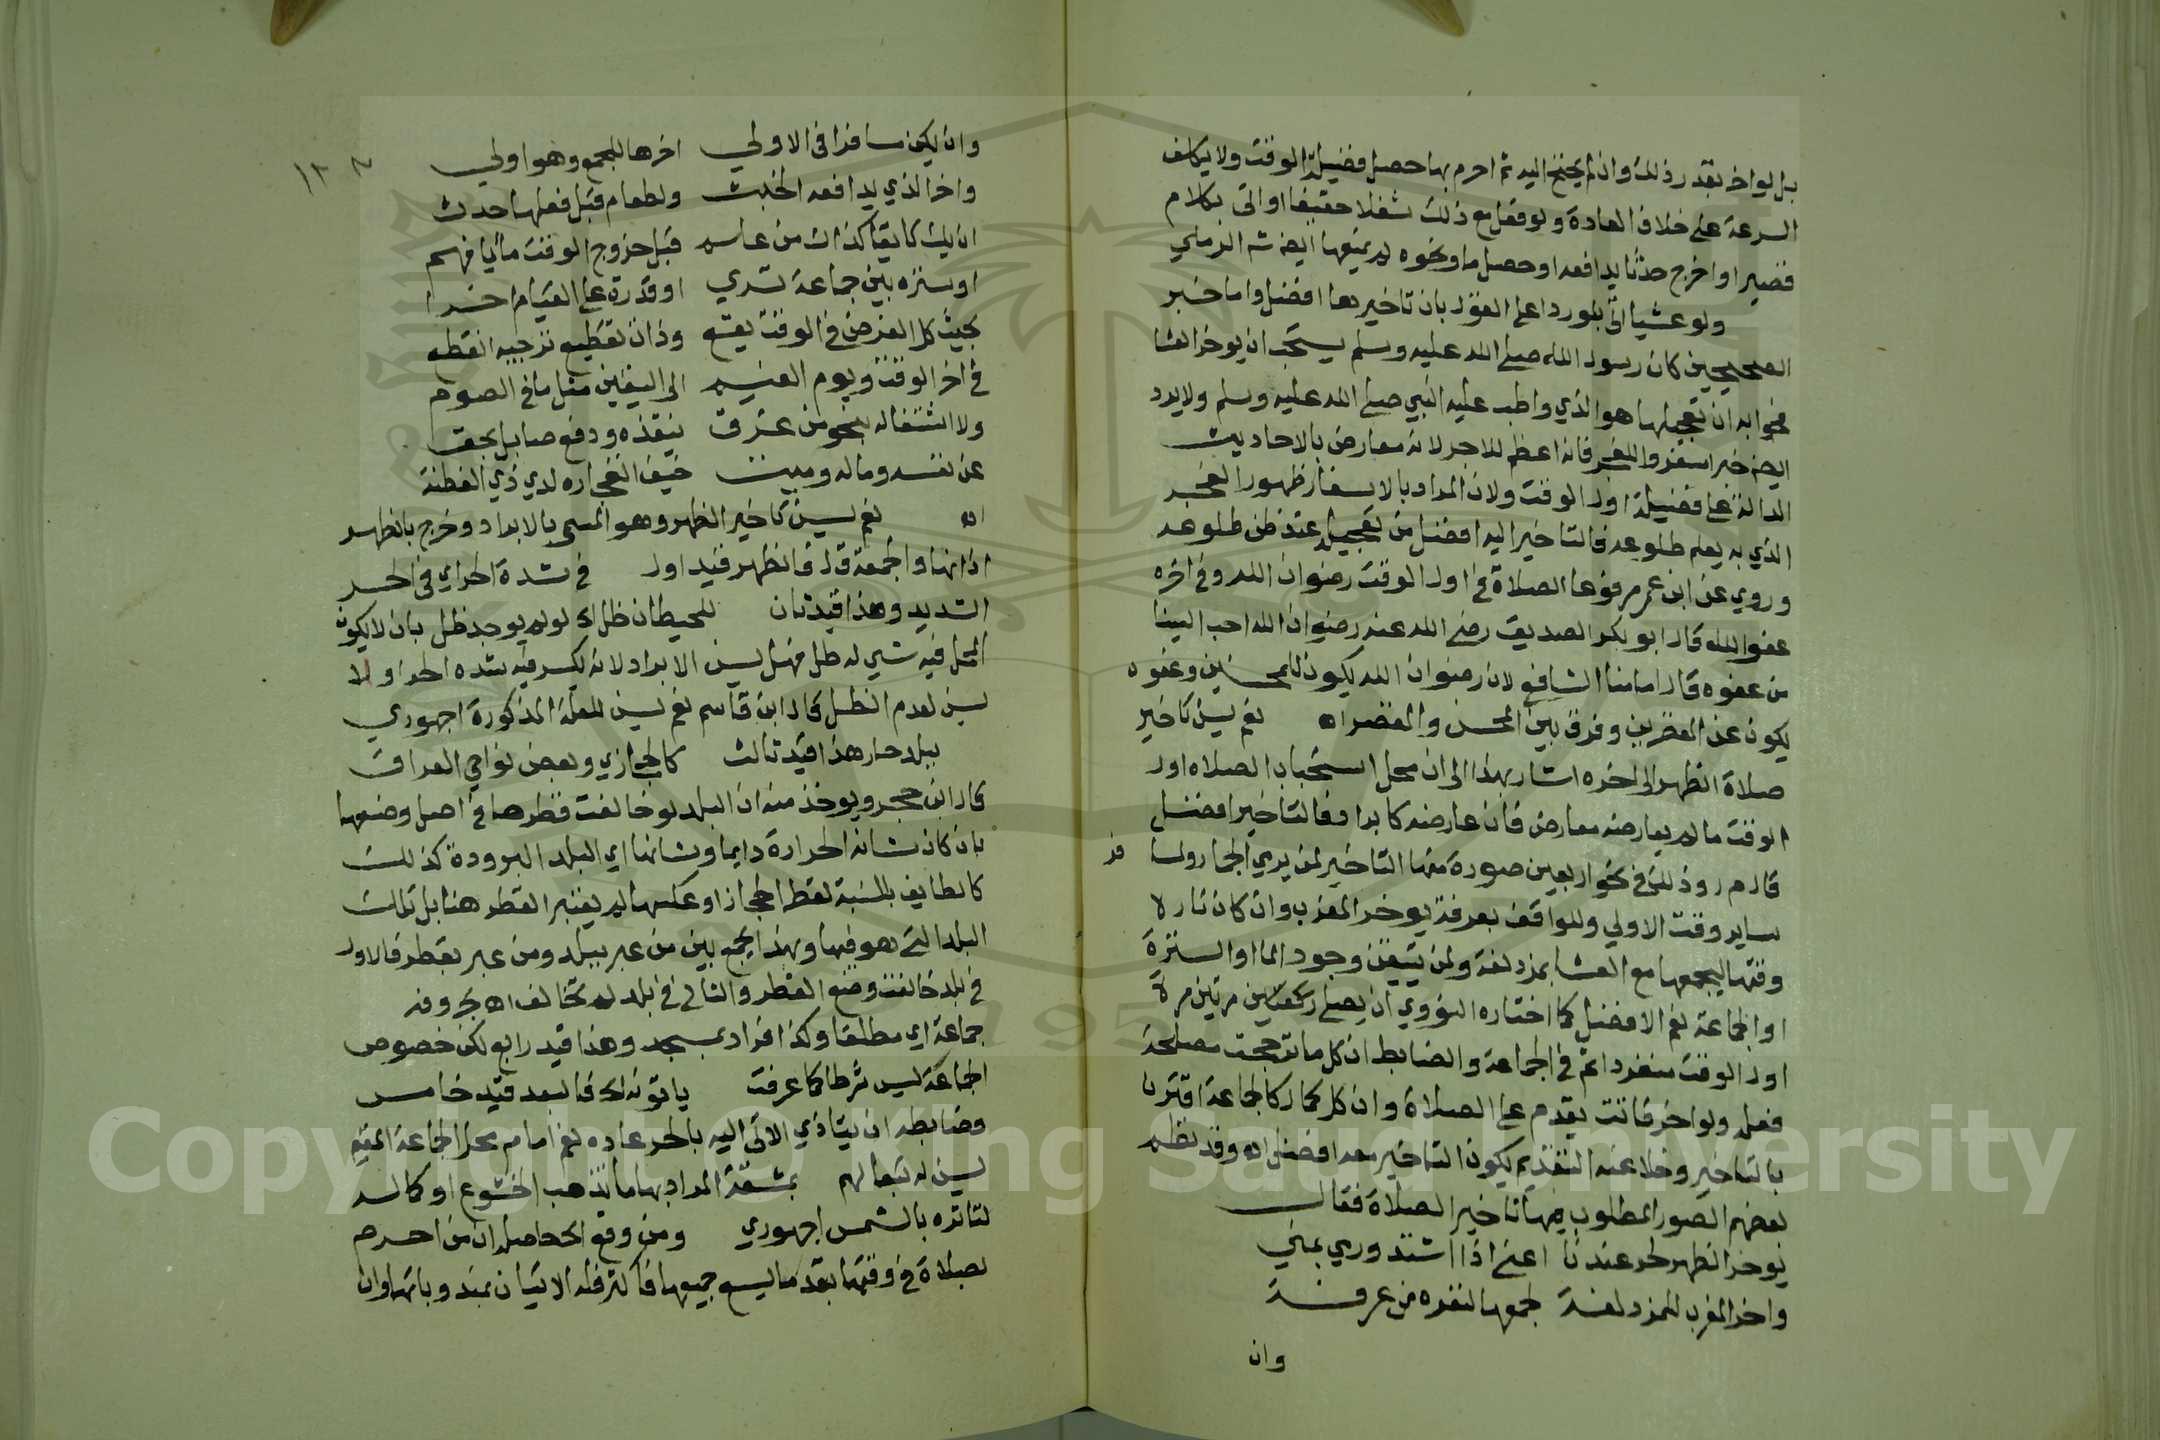 بل لواخر بقدر ذلك وان لم يحتج اليه ثم احرم بها حصل فضيلة الوقت ولا يكلف
السرعة على خلاف العادة ولو فعل مع ذلك شغلا خفيفا او اتى بكلام
قصير او اخرج حدثا يدافعه او حصل ما ونحوه لم يمنعها ايضه شه الرملي
ولو عشيا اتى بلو ردا على القول بان تاخيرها افضل واما خبر
الصحيحين كان رسول الله صلى الله عليه وسلم يستحب ان يوخر العشا
فجوابه ان تعجيلها هو الذي واظب عليه النبي صلى الله عليه وسلم ولا يرد
ايضه خبر اسفروا بالفجر فانه اعظم للاجر لانه معارض بالاحاديث
الدالة على فضيلة اول الوقت ولان المراد بالاسفار ظهور الفجر
الذي به يعلم طلوعه فالتاخير اليه افضل من تعجيله عند ظن طلوعه
وروي عن ابن عمر مرفوعا الصلاة في اول الوقت رضوان الله وفي اخره
عفو الله قال ابو بكر الصديق رضى الله عنه رضوان الله احب الينا
من عفوه قال امامنا الشافعي لان رضوان الله يكون للمحسنين وعفوه
يكون عن المقصرين وفرق بين المحسن والمقصر اه نعم يسن تاخير
صلاة الظهر الى اخره اشار بهذا الى ان محل استحباب الصلاه اول
الوقت ما لم يعارضه معارض فان عارضه كابراد فالتاخير افضل
قال م ر وذلك في نحو اربعين صورة منها التاخير لمن يرمي الجمار ولمسا
ساير وقت الاولي وللواقف بعرفة يوخر المغرب وان كان نازلا
وقتها ليجمعها مع العشا بمزدلفة ولمن تيقن وجود الما او السترة
او الجماعة نعم الافضل كما اختاره النووي ان يصلي ركعتين مرتين مرة
اول الوقت منفردا ثم في الجماعة والضابط ان كل ما ترجحت مصلحة
فعله ولو اخر فاتت يقدم على الصلاة وان كل كمال كالجماعة اقترن
بالتاخير وخلا عنه التقديم يكون التاخير معه افضل اه وقد نظم
بعضهم الصور المطلوب فيها تاخير الصلاة فقال
يوخر الظهر لحر عندنا اعني اذا اشتد وري بمني
واخر المغرب للمزدلفة لجمعها لنفره من عرفة
وان
وان يكن مسافرا في الاولي اخرها للجمع وهو اولي
واخر الذي يدافعه الخبث ولطعام قبل فعلها حدث
ان يك تايقا كذاك من عاسم قبل خروج الوقت مائيا فهم
او ستره بين جماعة تري او قدرة على القيام اخرا
بحيث كل الفرض في الوقت يقع وذات تقطيع ترجيه انقطع
في اخر الوقت ويوم الغيم الى اليقين مثل ما في الصوم
ولا اشتغاله بنحو من غرق ينقذه ودفع صايل بحق
عن نفسه وماله وميت خيف انفجاره لدي ذي الفطنة
اه نعم يسن تاخير الظهر وهو المسمي بالابراد وخرج بالظهر
اذانها والجمعة قال ق الظهر قيد اول في شدة الحر اي في الحر
الشديد وهذا قيد ثان للحيطان ظل اى لو لم يوجد ظل بان لا يكون
المحل فيه شي له ظل فهل يسن الابراد لانه يكسر فيه شده الحر او لا
يسن لعدم الظل قال ابن قاسم نعم يسن للعلة المذكورة اجهوري
ببلد حار هذا قيد ثالث كالحجازي وبعض نواحي العراق
قال ابن حجر ويوخذ منه ان البلد لو خالفت قطرها في اصل وضعها
بان كان شانه الحرارة دايما وشانها اي البلد البرودة كذلك
كالطايف بالنسبة لقطر الحجاز او عكسها لم يعتبر القطر هنا بل تلك
البلد التي هو فيها وبهذا يجمع بين من عبر ببلد ومن عبر بقطر فالاول
في بلد خالفت وضع القطر والثاني في بلد لم تخالف اه بحروفه
جماعة اي مطلقا وكذا فرادى بمسجد وهذا قيد رابع لكن خصوص
الجماعة ليس شرطا كما عرفت ياتونه اه فالبعد قيد خامس
وضابطه ان يتاذي الاتي اليه بالحر عاده نعم امام محل الجماعة المقيم
يسن له تبعا لهم بمشقة المراد بها ما تذهب الخشوع او كماله
لتاثره بالشمس اجهوري ومن وقع الحاصل ان من احرم
بصلاة في وقتها بقدر ما يسع جميعها فاكثر فله الاتيان بمندوباتها وان